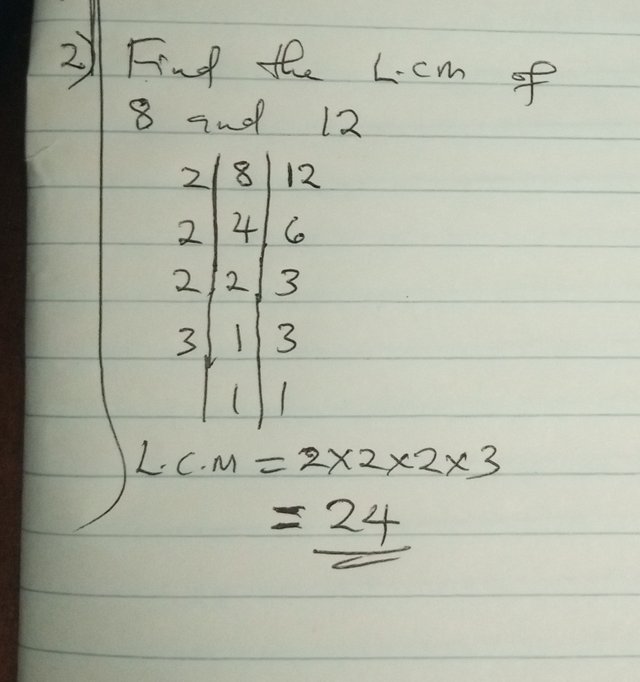 2) Find the L.cm of
8 and 12
2 | 8 | 12
2 | 4 | 6
2 | 2 | 3
3 | 1 | 3
| 1 | 1
L.C.M = 2×2×2×3
= 24